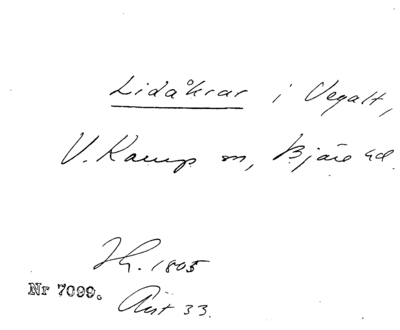 Lidåkrar i Vegalt,
V. Karup sn, Bjäre hd.
Jh. 1805
Nr 7099. Akt 33.